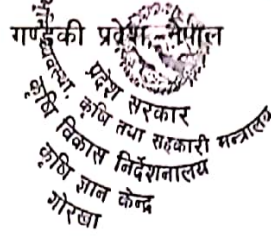 गण्डकी प्रदेश, नेपाल
प्रदेश सरकार
व्यवस्था, कृषि तथा सहकारी मन्त्रालय
कृषि विकास निर्देशनालय
कृषि ज्ञान केन्द्र
गोरखा